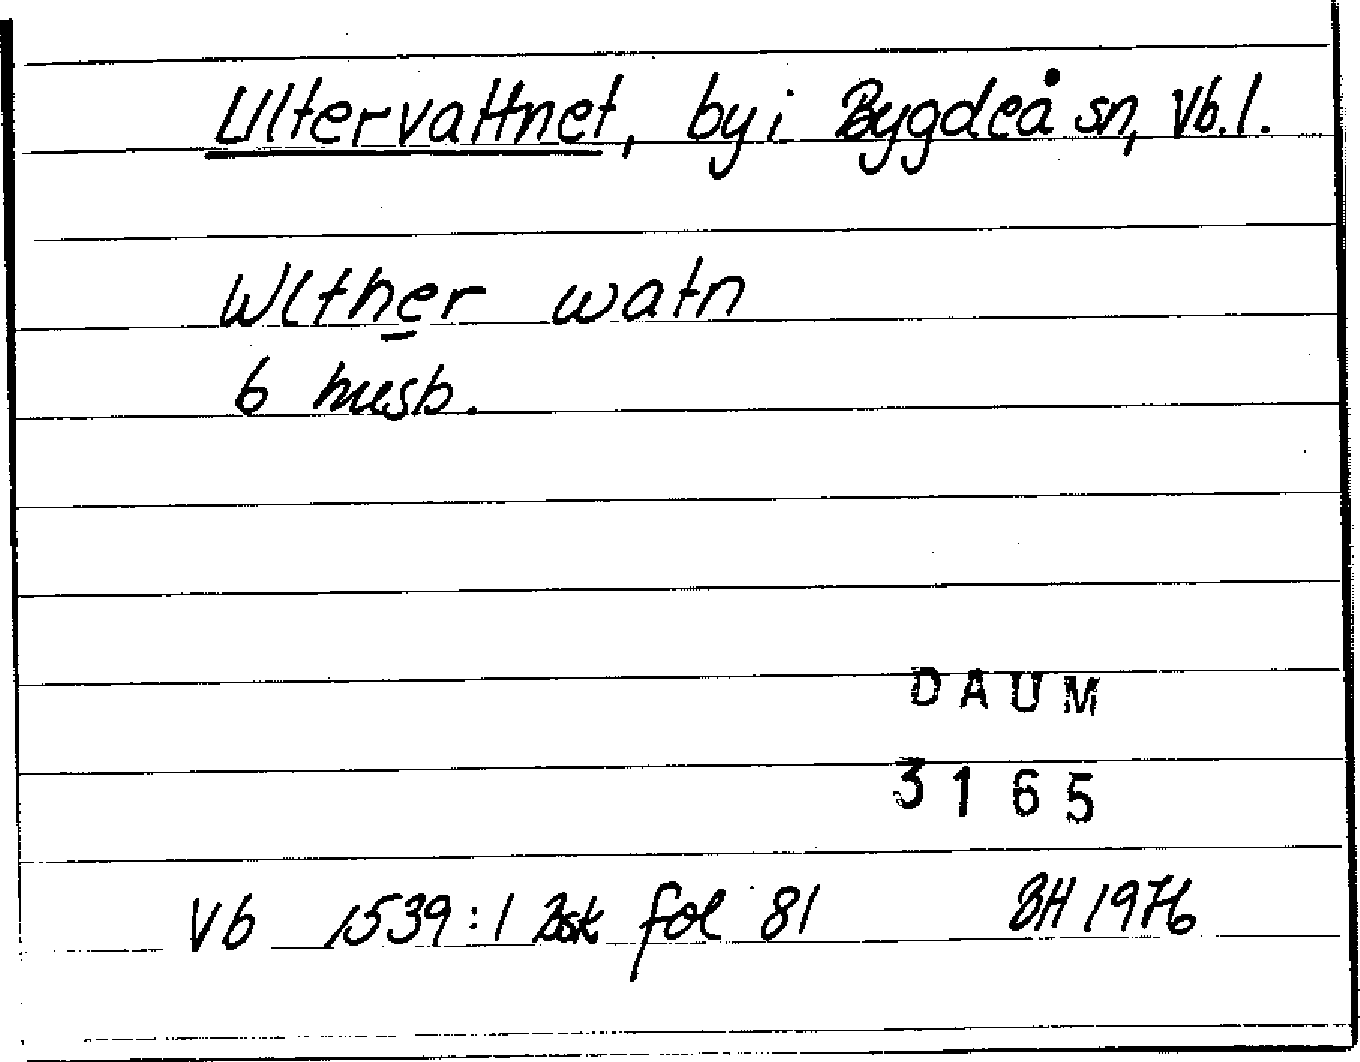 Ultervattnet, by i Bygdeå sn, Vb. l.
Wlther watn
6 husb.
DAUM
3165
Vb 1539:1 Bsk fol 81 BH 1976